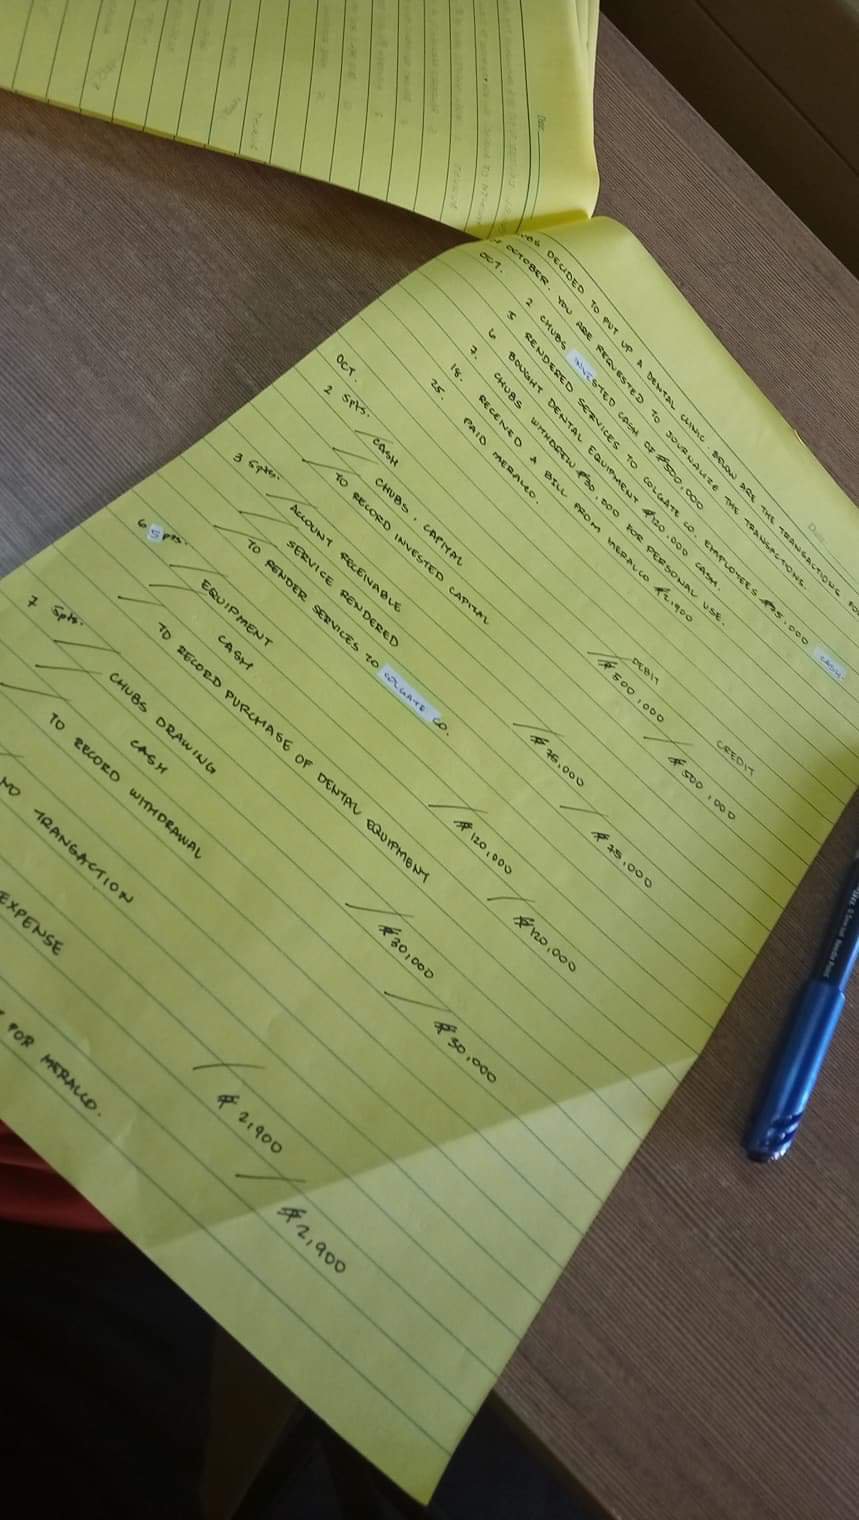 DECIDED TO PUT UP A DENTAL CLINIC. BELOW ARE THE TRANSACTIONS FOR
OCTOBER. YOU ARE REQUESTED TO JOURNALIZE THE TRANSACTIONS.
OCT.
2 CHUBS INVESTED CASH OF ₱500,000
RENDERED SERVICES TO COLGATE CO. EMPLOYEES CASH.
6 BOUGHT DENTAL EQUIPMENT ₱120,000 CASH.
7. CHUBS WITHDREW ₱30,000 FOR PERSONAL USE.
18. RECEIVED A BILL FROM MERALCO ₱2,900
25. PAID MERALCO.
DEBIT CREDIT
OCT.
2 5pts. CASH ₱500,000
CHUBS, CAPITAL ₱500,000
TO RECORD INVESTED CAPITAL
3 5pts. ACCOUNT RECEIVABLE ₱75,000
SERVICE RENDERED ₱75,000
TO RENDER SERVICES TO COLGATE CO.
6 5pts. EQUIPMENT ₱120,000
CASH ₱120,000
TO RECORD PURCHASE OF DENTAL EQUIPMENT
7 5pts. CHUBS DRAWING ₱30,000
CASH ₱30,000
TO RECORD WITHDRAWAL
NO TRANSACTION
EXPENSE ₱2,900
₱2,900
FOR MERALCO.